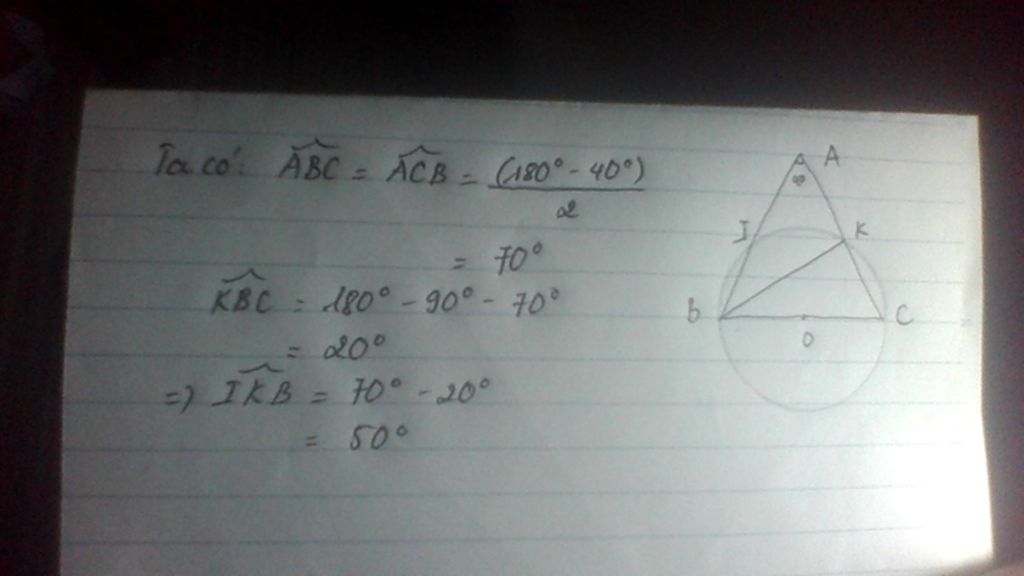 Ta có: ABC = ACB = (180° - 40°) / 2
= 70°
KBC = 180° - 90° - 70°
= 20°
=) IKB = 70° - 20°
= 50°
A
I
K
B
C
O